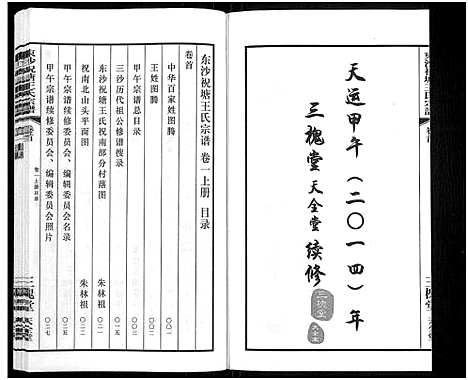 天运甲午（二〇一四）年
三槐堂 天全堂 续修
东沙祝塘王氏宗谱 卷一上册 目录
卷首
中华百家姓图腾 〇〇一
王姓图腾 〇〇二
甲午宗谱总目录 〇〇三
三沙历代祖公修谱搜录 〇一五
东沙祝塘王氏祝南部分村落图 〇二二
祝南北山头平面图 朱林祖 〇二三
甲午宗谱续修委员会、编辑委员会名录 〇二五
甲午宗谱续修委员会、编辑委员会照片 朱林祖 〇二七
东沙祝塘王氏宗谱
卷首
三槐堂